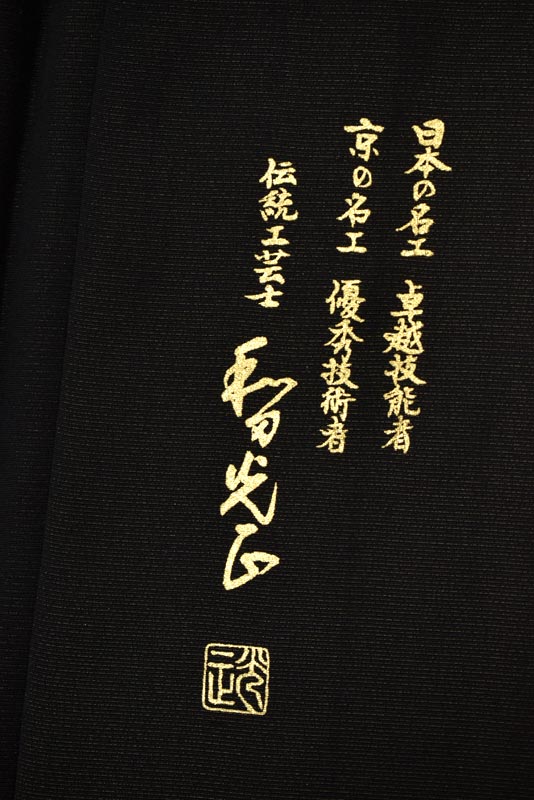 日本の名工 卓越技能者
京の名工 優秀技術者
伝統工芸士 和田光正
光正